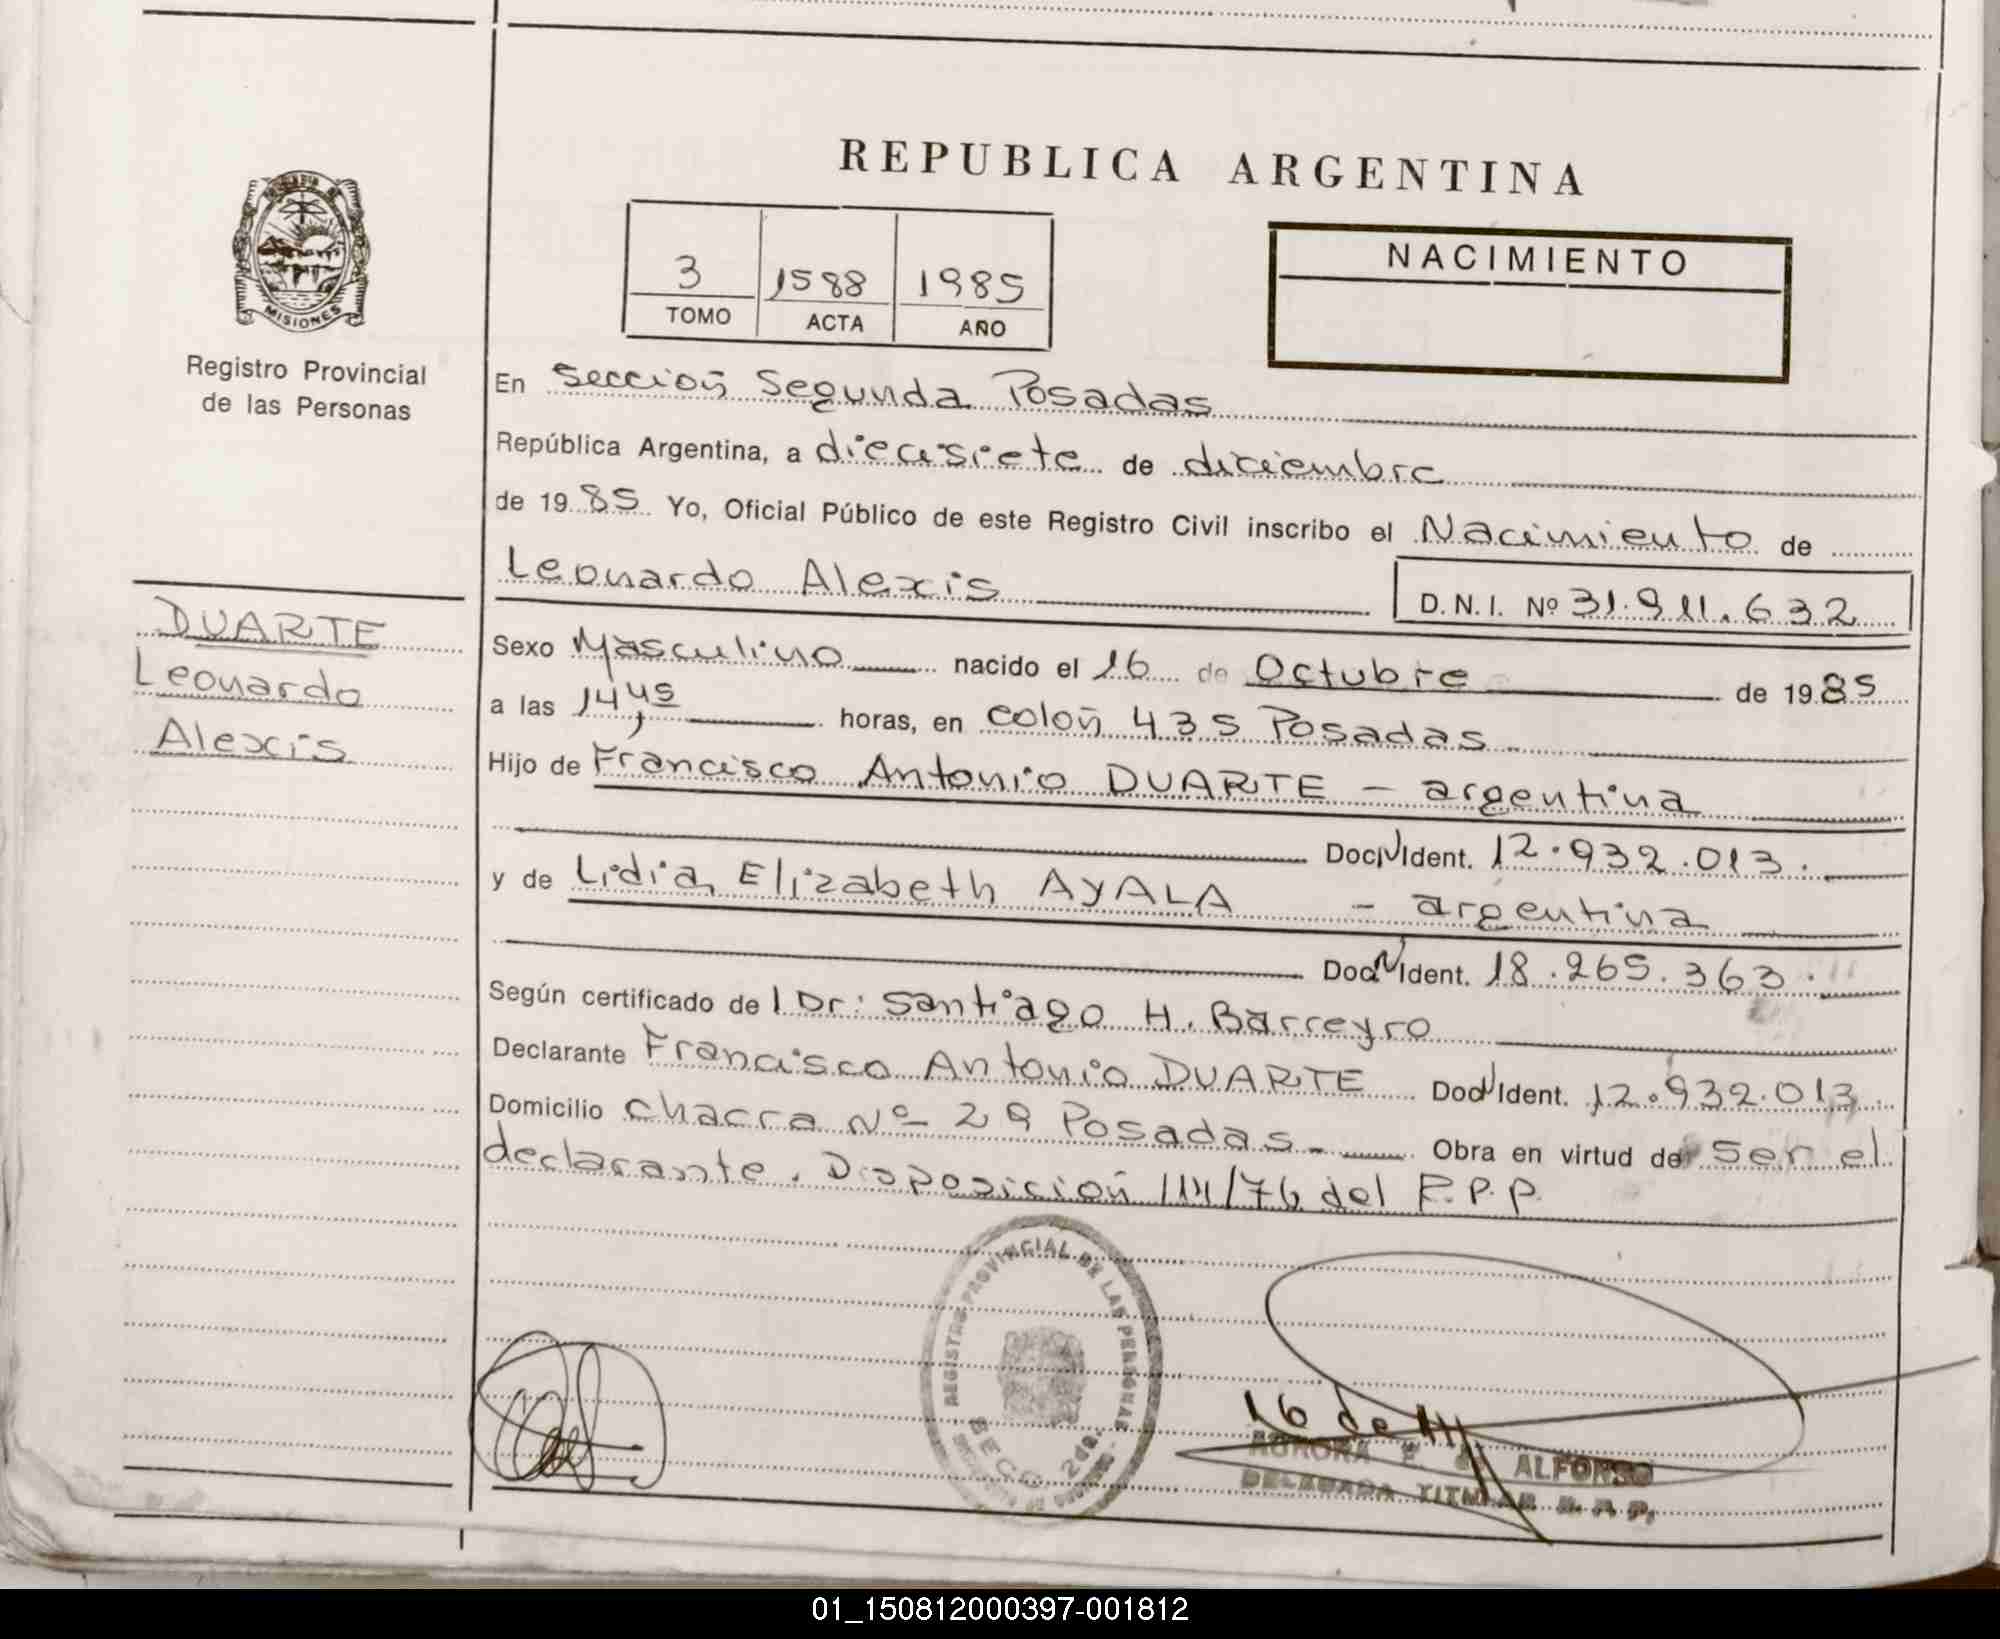 REPUBLICA ARGENTINA
MISIONES
Registro Provincial
de las Personas
3 1588 1985
TOMO ACTA AÑO
NACIMIENTO
En Sección Segunda Posadas
República Argentina, a diecisiete de diciembre
de 1985 Yo, Oficial Público de este Registro Civil inscribo el Nacimiento de
Leonardo Alexis
D.N.I. Nº 31.911.632
DUARTE
Leonardo
Alexis
Sexo Masculino nacido el 16 de Octubre de 1985
a las 14,45 horas, en colón 435 Posadas
Hijo de Francisco Antonio DUARTE - argentina
Doc. Ident. 12.932.013.
y de Lidia Elizabeth AYALA - argentina
Doc. Ident. 18.265.363.
Según certificado de l Dr: Santiago H. Barreyro
Declarante Francisco Antonio DUARTE Doc. Ident. 12.932.013.
Domicilio chacra Nº 29 Posadas - Obra en virtud de Ser el
declarante. Disposición /76 del P.P.
REGISTRO PROVINCIAL DE LAS PERSONAS
SECC. 2da.
16 de
AURORA ALFONSO
DELEGADA TITULAR
01_150812000397-001812